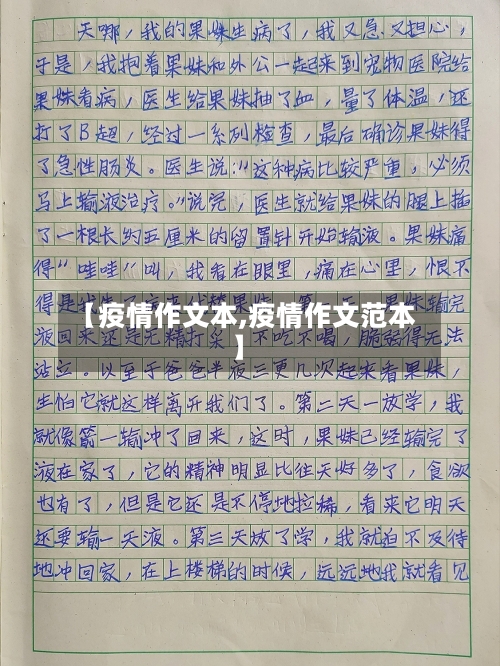 天哪，我的果妹生病了，我又急又担心，
于是，我抱着果妹和外公一起来到宠物医院给
果妹看病，医生给果妹抽了血，量了体温，还
打了B超，经过一系列检查，最后确诊果妹得
了急性肠炎。医生说："这种病比较严重，必须
马上输液治疗。"说完，医生就给果妹的腿上插
了一根长约五厘米的留置针开始输液。果妹痛
得"哇哇"叫，我看在眼里，痛在心里，恨不
得是我生了
果妹输完
【疫情作文本,疫情作文范本
】
液回来还是无精打采，不吃不喝，脆弱得无法
站立。以至于爸爸半夜三更几次起来看果妹，
生怕它就这样离开我们了。第二天一放学，我
就像箭一输冲了回来，这时，果妹已经输完了
液在家了，它的精神明显比往天好多了，食欲
也有了，但是它还是不停地拉稀，看来它明天
还要输一天液。第三天放了学，我就迫不及待
地冲回家，在上楼梯的时候，远远地我就看见